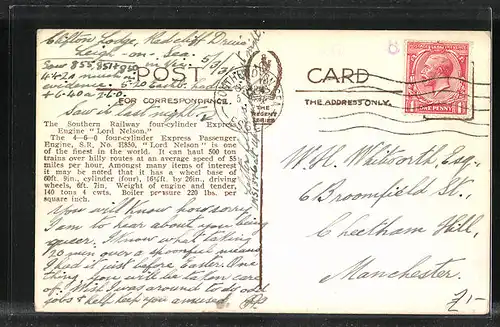 Clifton Lodge, Radcliff Drive
Leigh-on-Sea
Saw 855, 851 & 850
in Vic. 5/3/1
4.42a much in
evidence. 5.20 Earth. had
& 6.40a 2.6.0.
POST CARD
FOR CORRESPONDENCE.
THE ADDRESS ONLY.
Saw it last night
THE
REGENT
SERIES
ONE PENNY
The Southern Railway four-cylinder Express
Engine "Lord Nelson."
The 4-6-0 four-cylinder Express Passenger
Engine, S.R., No. E850, "Lord Nelson" is one
of the finest in the world. It can haul 500 ton
trains over hilly routes at an average speed of 55
miles per hour. Amongst many items of interest
it may be noted that it has a wheel base of
60ft. 9in., cylinder (four), 16½ft. by 26in., driving
wheels, 6ft. 7in. Weight of engine and tender,
140 tons 4 cwts. Boiler pressure 220 lbs. per
square inch.
You will know how sorry
I am to hear about you being
queer. I know what taking
20 min over a spoonful means
I had it just before Easter. One
thing you will be taken care
of. Wish I was around to do odd
jobs & help keep you amused.
W. H. Whitworth, Esq.,
6 Broomfield St.,
Cheetham Hill,
Manchester.
£1-